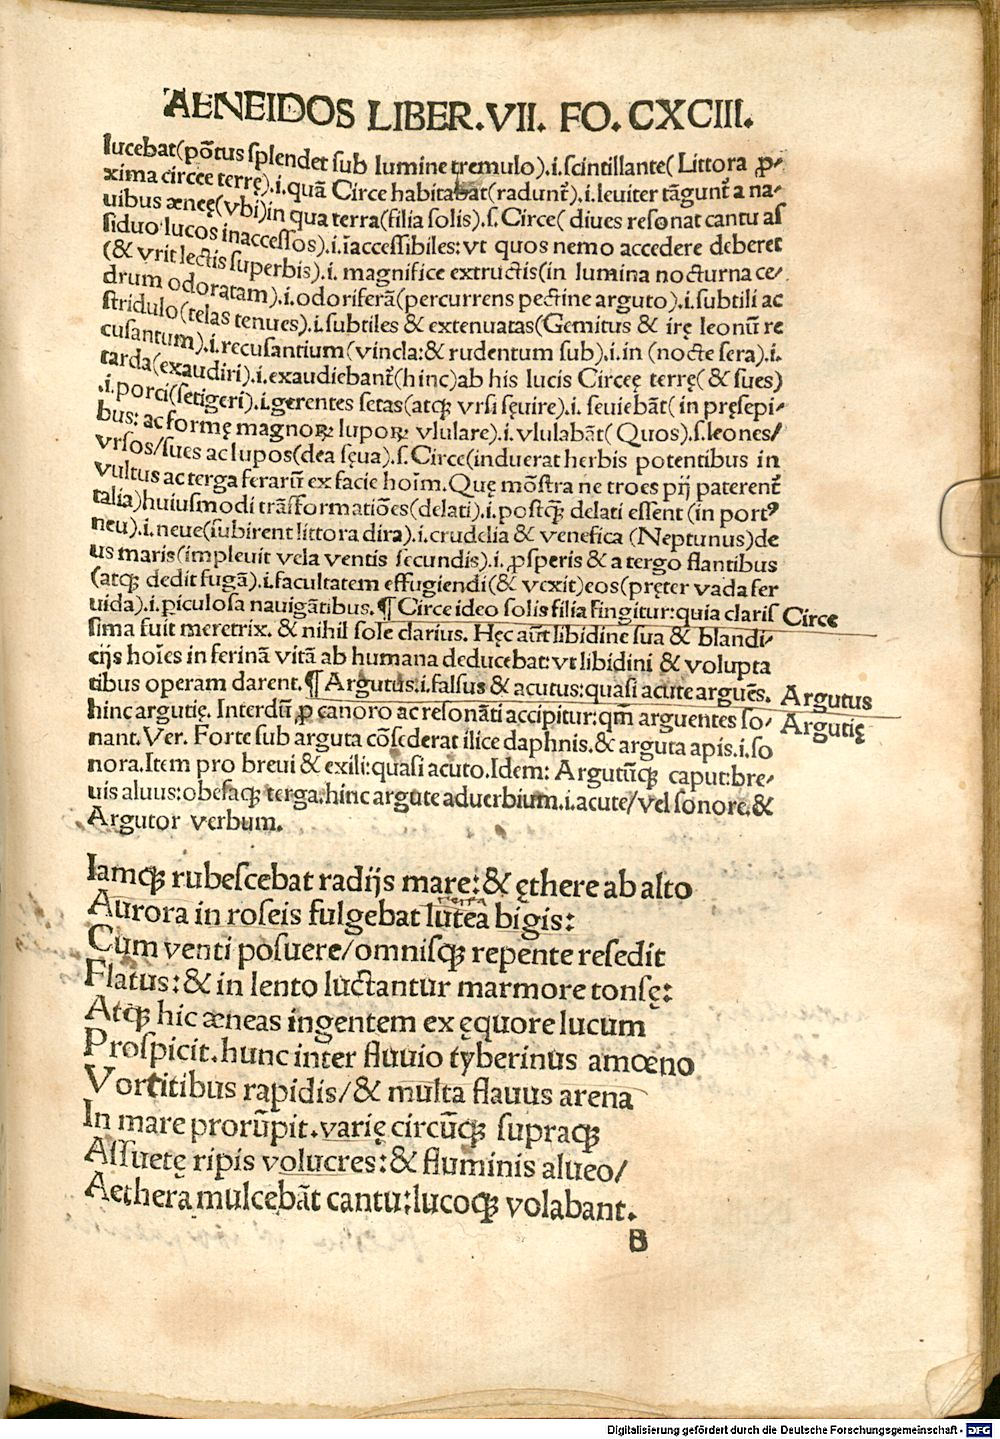 AENEIDOS LIBER.VII. FO.CXCIII.
lucebat(põtus splendet sub lumine tremulo).i.scintillante(Littora ꝓ-
xima circee terrę).i.quã Circe habitabat(radunt᷑).i.leuiter tãgunt᷑ a na-
uibus æneę(vbi)in qua terra(filia solis).s.Circe(diues resonat cantu as
siduo lucos inaccessos).i.ĩaccessibiles:vt quos nemo accedere deberet
(& vrit lectis superbis).i. magnifice extructis(in lumina nocturna ce-
drum odoratam).i.odoriferã(percurrens pectine arguto).i.subtili ac
stridulo(telas tenues).i.subtiles & extenuatas(Gemitus & irę leonũ re
cusantum).i.recusantium(vincla:& rudentum sub).i.in (nocte sera).i.
tarda(exaudiri).i.exaudiebant᷑(hinc)ab his lucis Circeę terrę(& sues)
.i.porci(setigeri).i.gerentes setas(atqꝫ vrsi sęuire).i. seuiebãt(in pręsepi-
bus: ac formę magnoꝝ lupoꝝ vlulare).i.vlulabãt(Quos).s.leones/
vrsos/sues ac lupos(dea sęua).s.Circe(induerat herbis potentibus in
vultus ac terga ferarũ ex facie hoĩm.Quę mõstra ne troes pij paterent᷑
talia)huiusmodi trãsformatiões(delati).i.postqꝫ delati essent(in portꝰ
neu).i.neue(subirent littora dira).i.crudelia & venefica (Neptunus)de
us maris(impleuit vela ventis secundis).i.ꝓsperis & a tergo flantibus
(atqꝫ dedit fugã).i.facultatem effugiendi(& vexit)eos(pręter vada fer
uida).i.ꝑiculosa nauigãtibus.¶Circe ideo solis filia fingitur:quia claris Circe
sima fuit meretrix. & nihil sole clarius. Hęc aũt libidine sua & blandi-
cijs hoĩes in ferinã vitã ab humana deducebat:vt libidini & volupta
tibus operam darent.¶Argutus.i.falsus & acutus:quasi acute arguẽs. Argutus
hinc argutię. Interdũ ꝓ canoro ac resonãti accipitur:qm̃ arguentes so- Argutię
nant.Ver. Forte sub arguta cõsederat ilice daphnis.& arguta apis.i.so
nora.Item pro breui & exili:quasi acuto.Idem: Argutũqꝫ caput:bre-
uis aluus:obesaqꝫ terga.hinc argute aduerbium.i.acute/vel sonore.&
Argutor verbum.
Iamqꝫ rubescebat radijs mare:& ęthere ab alto
Aurora in roseis fulgebat lutea bigis:
Cum venti posuere/omnisqꝫ repente resedit
Flatus:& in lento luctantur marmore tonsę:
Atqꝫ hic æneas ingentem ex ęquore lucum
Prospicit.hunc inter fluuio tyberinus amœno
Vortitibus rapidis/& multa flauus arena
In mare prorũpit.varię circũqꝫ supraqꝫ
Assuetę ripis volucres:& fluminis alueo/
Aethera mulcebãt cantu:lucoqꝫ volabant.
B
Digitalisierung gefördert durch die Deutsche Forschungsgemeinschaft - DFG